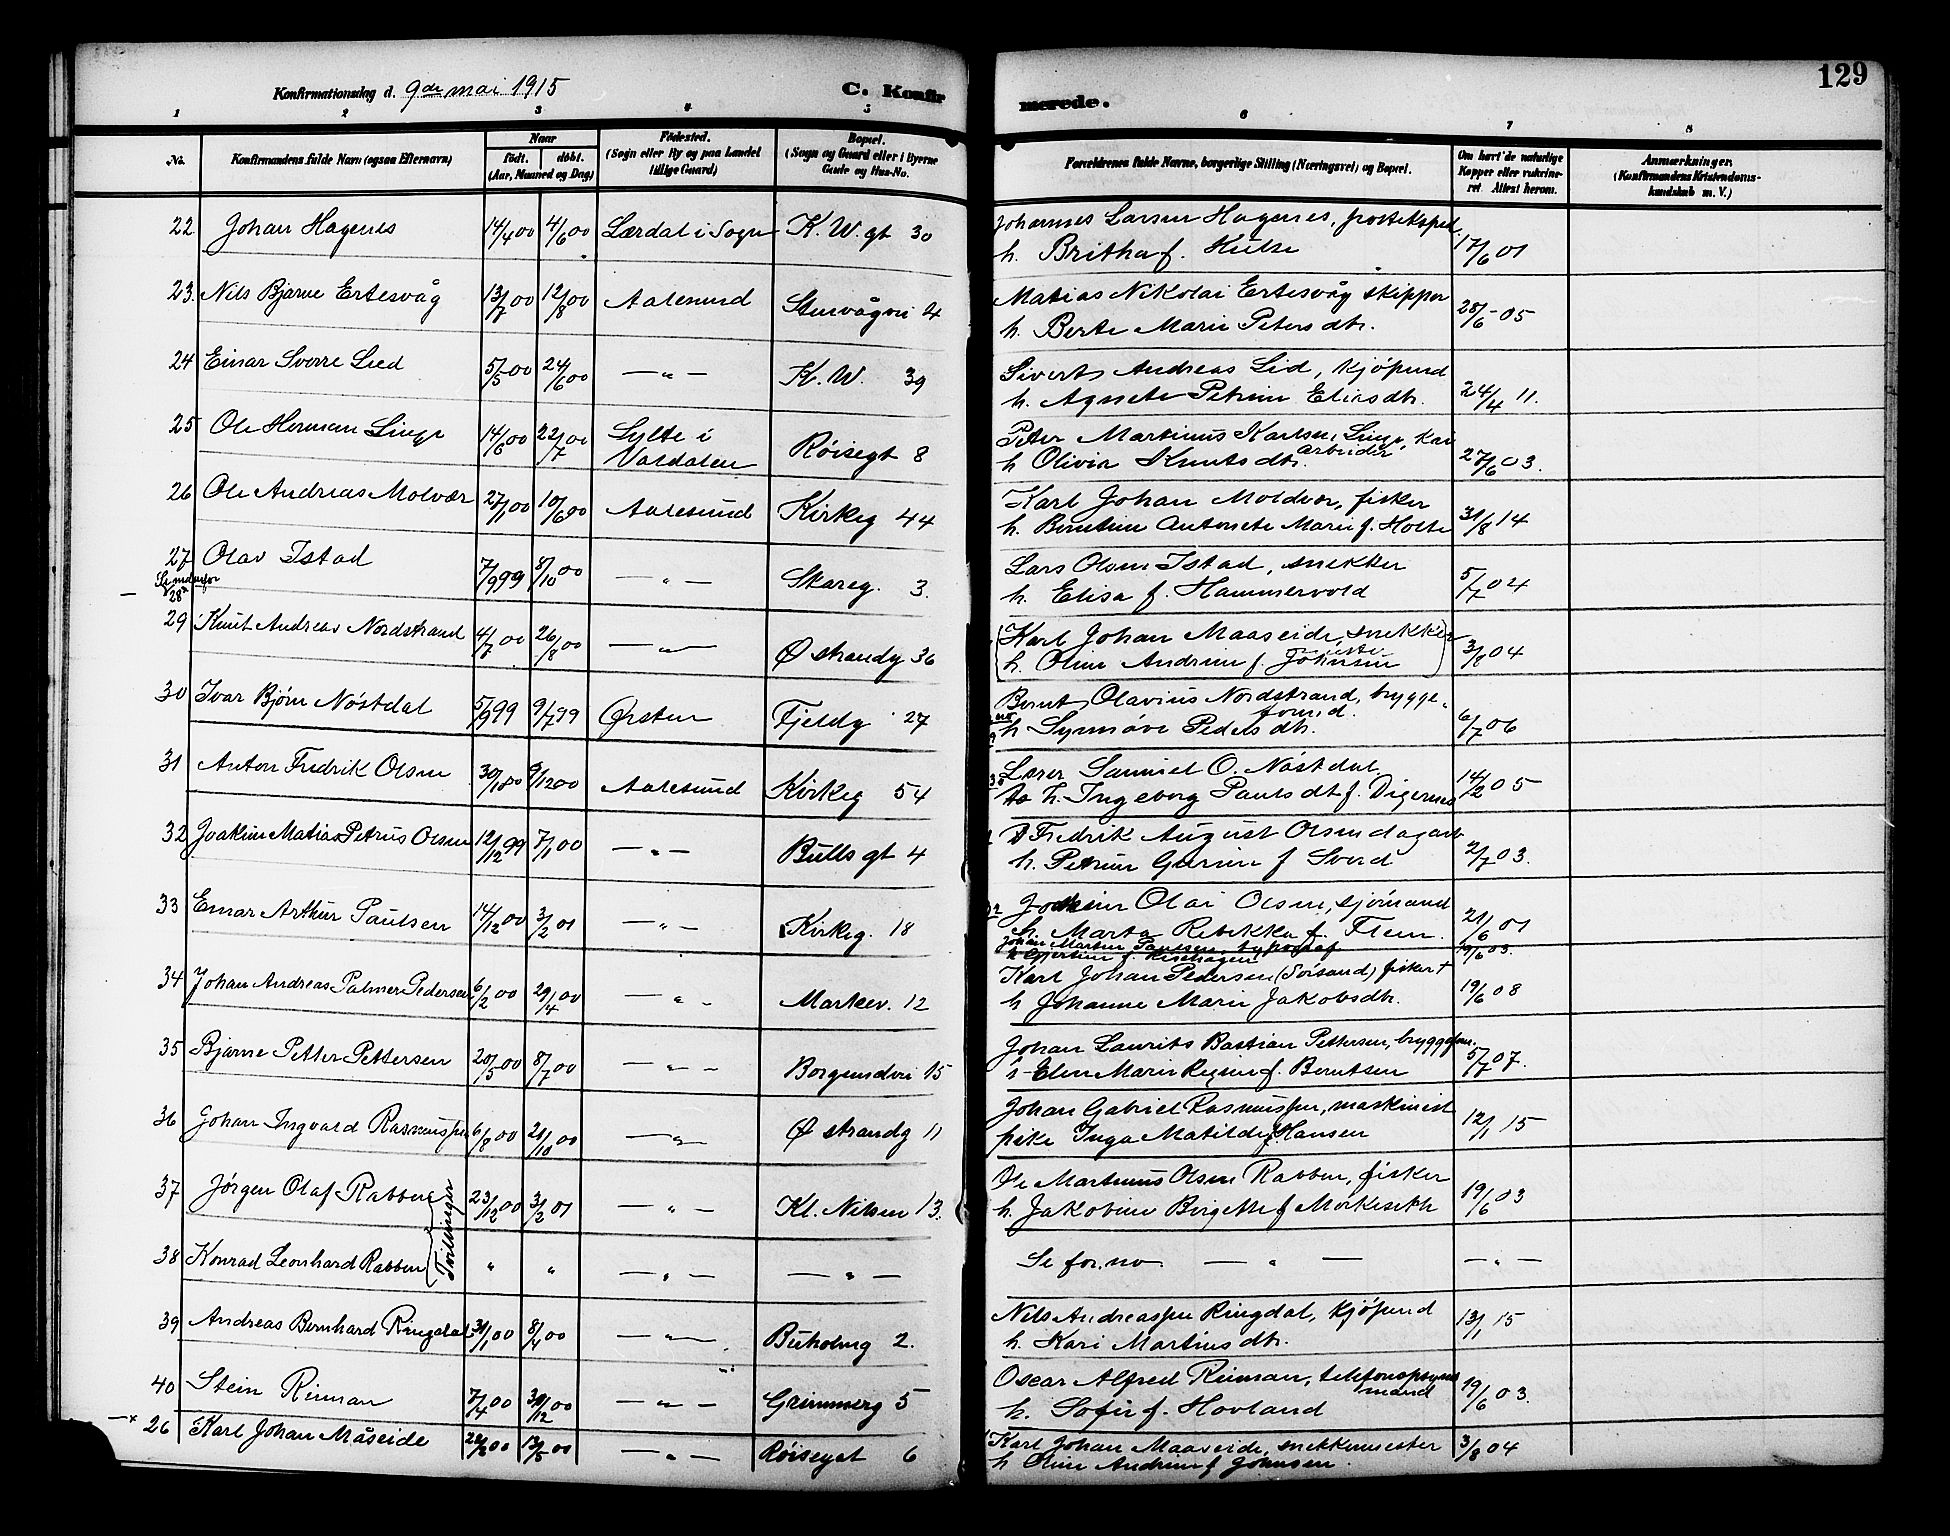 129
Konfirmationsdag d. 9de mai 1915
C. Konfir
merede.
1 2 3 4 5 6 7 8
No.
Konfirmandens fulde Navn (ogsaa Efternavn)
Naar
født. døbt.
(Aar, Maaned og Dag)
Fødested.
(Sogn eller By og paa Landet
tillige Gaard)
Bopæl.
(Sogn og Gaard eller i Byerne
Gade og Hus-No.
Forældrenes fulde Navne, borgerlige Stilling (Næringsvei) og Bopæl.
Om havt de naturlige
Kopper eller vakcine-
ret Attest herom.
Anmærkninger.
(Konfirmandens Kristendoms-
kundskab m. V.)
22 Johan Hagenes 14/4 00 4/6 00 Lærdal i Sogn K. W. gt 30 Johannes Larsen Hagenes, postekspd.
h. Britha f. Hulse 17/6 01
23. Nils Bjarne Ertesvåg 13/7 00 12/8 00 Aalesund Storvågvei 4 Matias Nikolai Ertesvåg skipper
h. Berte Marie Peters dtr. 28/6 - 05
24 Einar Sverre Lied 5/5 00 24/6 00 — „ — K. W. 39 Sivert Andreas Lid, kjøpmd
h. Agnete Petrine Elias dtr. 24/4 11.
25 Ole Herman Linge 14/6 00 22/7 00 Sylte i
Valdalen Røisegt 8 Peter Martinus Karlsen Linge, kai
arbeider
h Olivia Knuts dtr. 27/6 03.
26 Ole Andreas Molvær 27/1 00 10/6 00 Aalesund Kirkeg 44 Karl Johan Moldvær, fisker
h. Berntine Antonete Marie f. Holte 31/8 14
27 Olav Istad 7/9 99 8/10 00 — „ — Skareg. 3. Lars Olsen Istad, snekker
h. Elisa f. Hammervold 5/7 04
28
29 Knut Andreas Nordstrand 4/7 00 26/8 00 — „ — Ø strandg 36 (Karl Johan Maaseide, snekker
h. Oline Andrine f. Johnsen) 3/8 04
30 Ivar Bjørn Nøstdal 5/9 99 9/7 99 Ørsten Fjeldg 27 Bernt Olavius Nordstrand, brygge
formd.
h Synnøve Peders dtr. 6/7 06
31 Anton Fredrik Olsen 30/10 00 9/12 00 Aalesund Kirkeg 54 Lærer Samuel O. Nøstdal
h. Ingeborg Pauls dtr f. Digernes 14/2 05
32 Joakim Matias Petrus Olsen 12/12 99 7/1 00 — „ — Bulls gt 4 Fredrik August Olsen dagarb
h. Petrine Gurine f Sverd 2/7 03.
33 Einar Arthur Paulsen 14/12 00 3/2 01 — „ — Kirkeg. 18 Joakim Olai Olsen, sjømand
h. Marta Rebekka f. Flem. 21/6 01
Johan Martin Paulsen, typograf 19/6 03.
34 Johan Andreas Palmer Pedersen 6/2 00 29/4 00 — „ — Markev. 12 Karl Johan Pedersen (Sørsand) fisker †
h Johanne Marie Jakobsdtr. 19/6 08
35 Bjarne Petter Pettersen 20/5 00 8/7 00 — „ — Borgundvei 15 Johan Laurits Bastian Pettersen, bryggefm.
Elen Marie Regine f. Berntsen 5/7 07.
36 Johan Ingvald Rasmussen 6/8 00 21/10 00 — „ — Ø strandg 11 Johan Gabriel Rasmussen, maskinist
pike Inga Matilde Hansen 12/1 15
37 Jørgen Olaf Rabben 23/12 00 3/2 01 — „ — Kl. Nilsen 13. Ole Martinus Olsen Rabben, fisker
h. Jakobine Birgitte f Morkeseth 19/6 03
Tvillinger
38 Konrad Leonhard Rabben „ „ — „ — — „ — Se for. no. — „ — — „ —
39 Andreas Bernhard Ringdal 31/1 00 8/4 00 — „ — Buholmg 2. Nils Andreassen Ringdal, kjøpmd
h. Kari Martinus dtr. 13/1 15
40 Stein Riiman 7/4 00 30/12 00 — „ — Grimmerg 5 Oscar Alfred Riiman, telefonopsyns
mand
h. Sofie f. Hovland 19/6 03.
26 Karl Johan Måseide 22/3 00 13/5 00 — „ — Røisegat 6 Karl Johan Maaseide, snekkermester
h Oline Andrine f Johnsen. 3/8 04